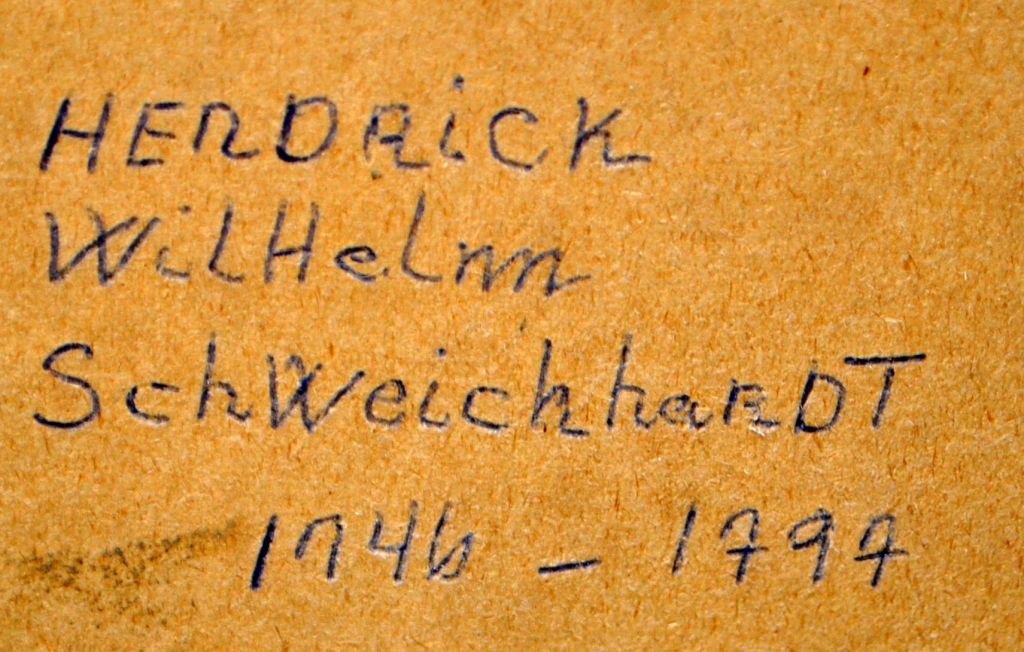 HEnDRiCK
WilHelm
SchWeichhaRDT
1746 - 1797